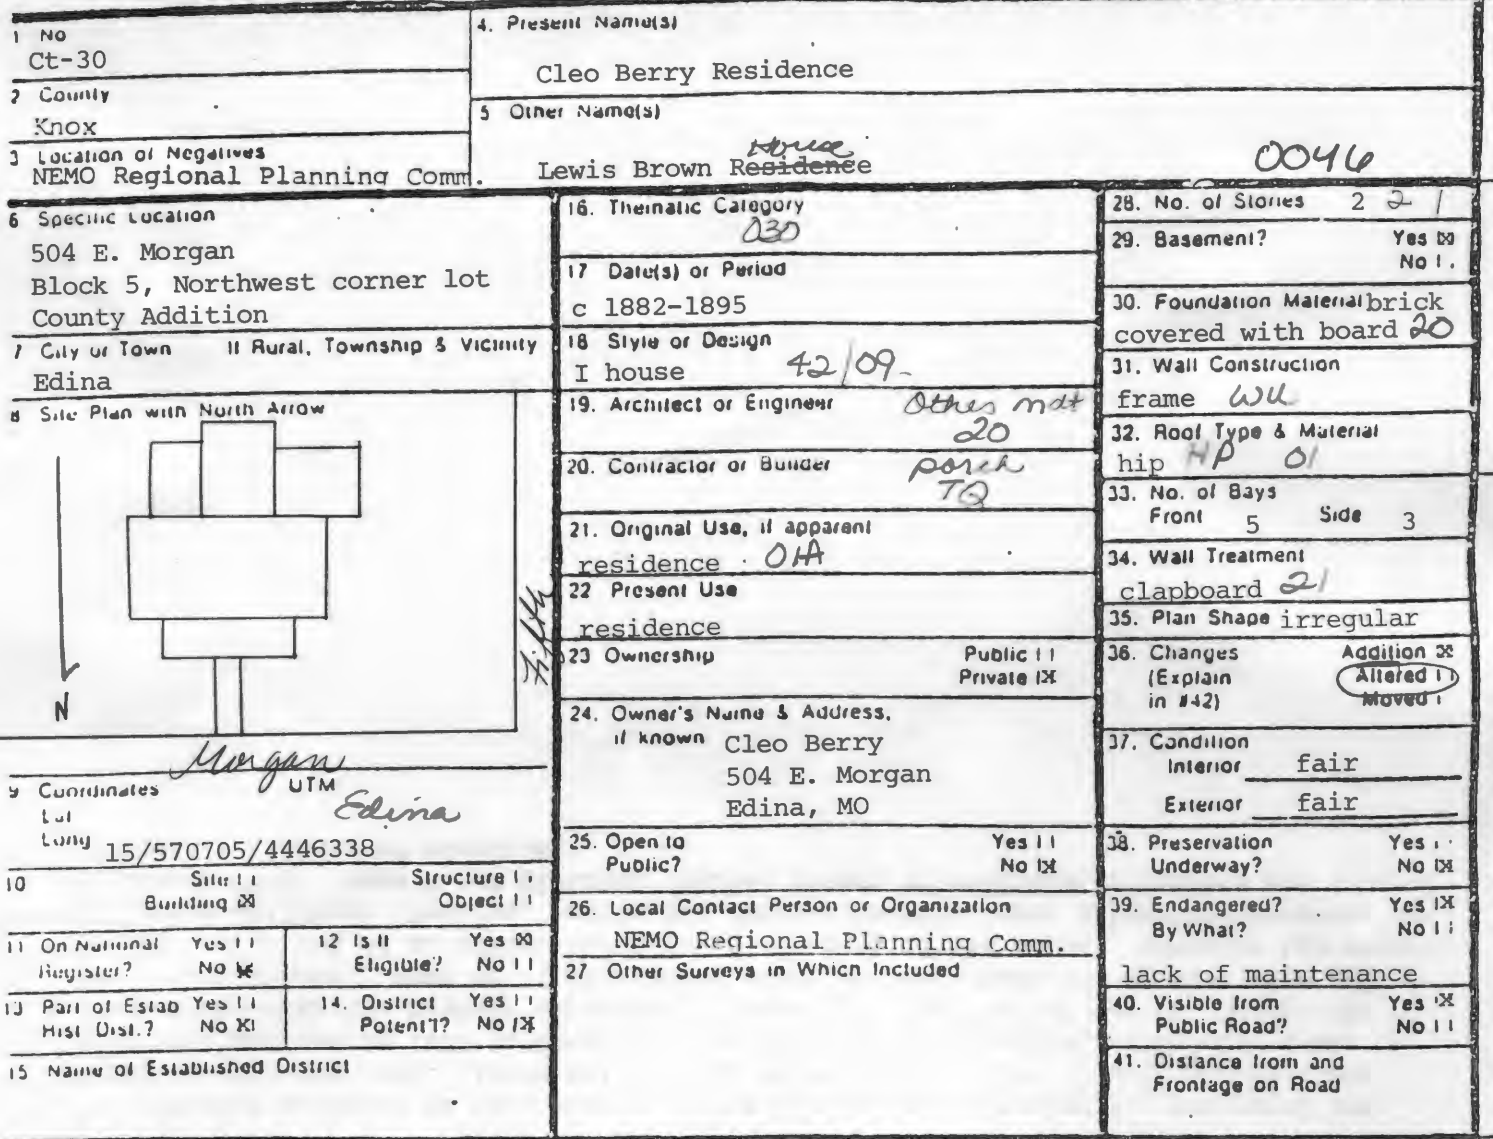 1 No
Ct-30
2 County
Knox
3 Location of Negatives
NEMO Regional Planning Comm.
4. Present Name(s)
Cleo Berry Residence
5 Other Name(s)
House
Lewis Brown Residence
0046
6 Specific Location
504 E. Morgan
Block 5, Northwest corner lot
County Addition
7 City or Town If Rural, Township & Vicinity
Edina
8 Site Plan with North Arrow
N
Fifth
Morgan
9 Coordinates UTM
Lat
Edina
Long 15/570705/4446338
10 Site Structure
Building Object
11 On National Register? Yes No
12 Is It Eligible? Yes No
13 Part of Estab Hist Dist.? Yes No
14. District Potent'l? Yes No
15 Name of Established District
16. Thematic Category
030
17 Date(s) or Period
c 1882-1895
18 Style or Design
I house 42/09
19. Architect or Engineer
Other mat
20
20. Contractor or Builder
porch
TQ
21. Original Use, if apparent
residence 01A
22 Present Use
residence
23 Ownership Public
Private
24. Owner's Name & Address,
if known Cleo Berry
504 E. Morgan
Edina, MO
25. Open to Yes
Public? No
26. Local Contact Person or Organization
NEMO Regional Planning Comm.
27 Other Surveys in Which Included
28. No. of Stories 2 2 1
29. Basement? Yes
No
30. Foundation Material brick
covered with board 20
31. Wall Construction
frame WU
32. Roof Type & Material
hip HP 01
33. No. of Bays
Front 5 Side 3
34. Wall Treatment
clapboard 21
35. Plan Shape irregular
36. Changes Addition
(Explain Altered
in #42) Moved
37. Condition
Interior fair
Exterior fair
38. Preservation Yes
Underway? No
39. Endangered? Yes
By What? No
lack of maintenance
40. Visible from Yes
Public Road? No
41. Distance from and
Frontage on Road